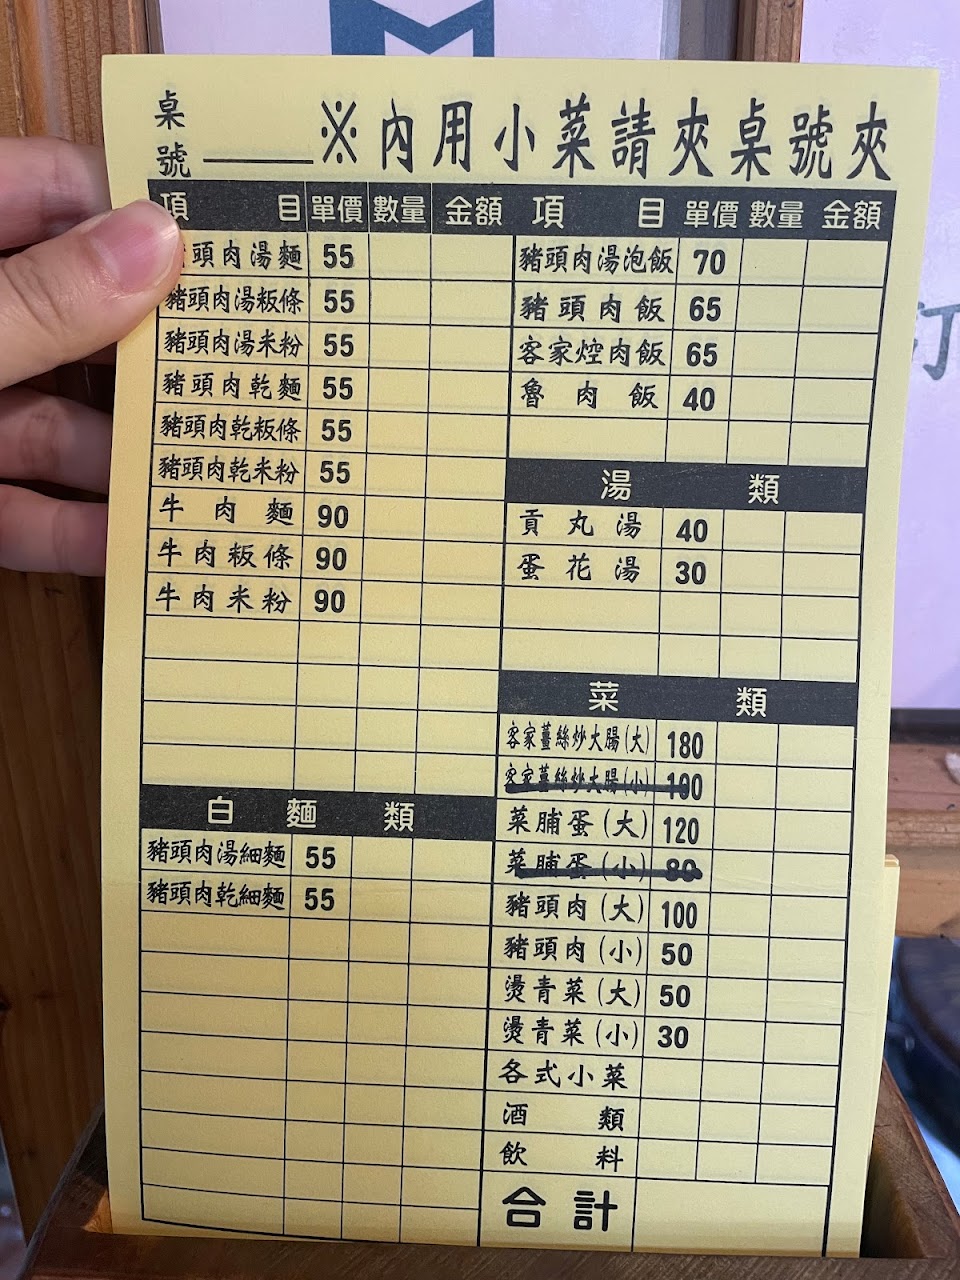 桌號
※內用小菜請夾桌號夾
項目 單價 數量 金額
頭肉湯麵 55
豬頭肉湯粄條 55
豬頭肉湯米粉 55
豬頭肉乾麵 55
豬頭肉乾粄條 55
豬頭肉乾米粉 55
牛肉麵 90
牛肉粄條 90
牛肉米粉 90
白麵類
豬頭肉湯細麵 55
豬頭肉乾細麵 55
項目 單價 數量 金額
豬頭肉湯泡飯 70
豬頭肉飯 65
客家焢肉飯 65
魯肉飯 40
湯類
貢丸湯 40
蛋花湯 30
菜類
客家薑絲炒大腸(大) 180
客家薑絲炒大腸(小) 100
菜脯蛋(大) 120
菜脯蛋(小) 80
豬頭肉(大) 100
豬頭肉(小) 50
燙青菜(大) 50
燙青菜(小) 30
各式小菜
酒類
飲料
合計